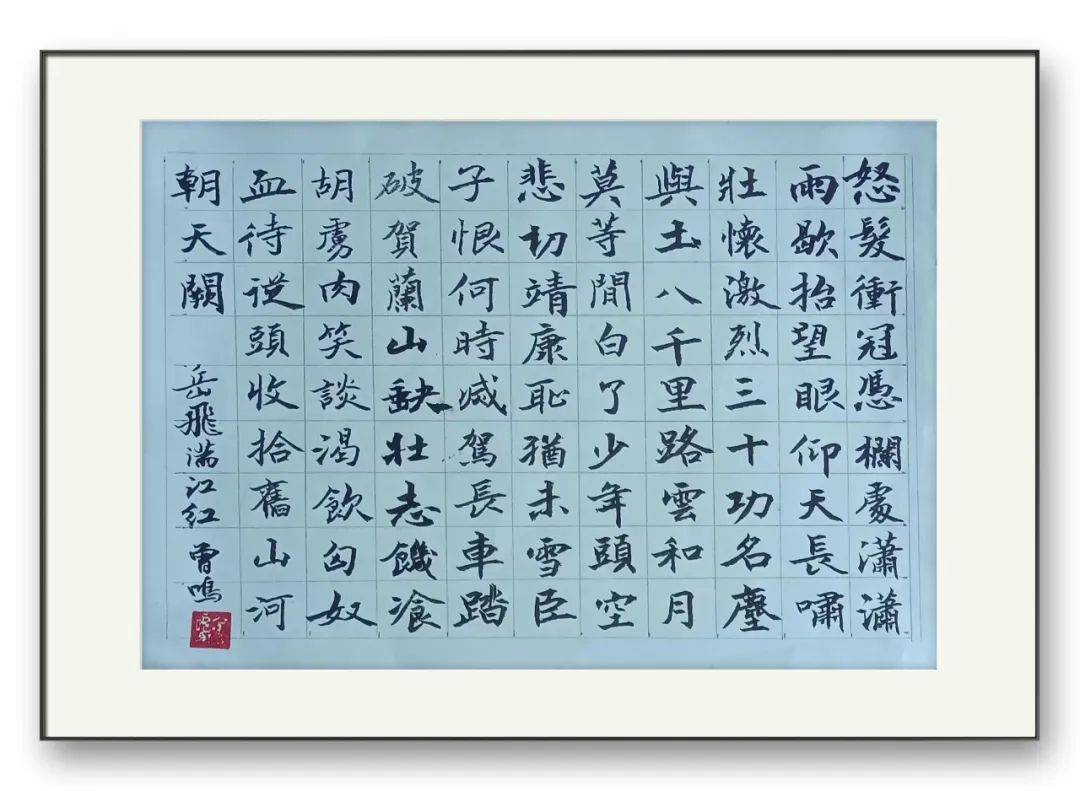 怒髮衝冠憑欄處瀟瀟
雨歇抬望眼仰天長嘯
壯懷激烈三十功名塵
與土八千里路雲和月
莫等間白了少年頭空
悲切靖康恥猶未雪臣
子恨何時減駕長車踏
破賀蘭山缺壯志饑飡
胡虜肉笑談渴飲匈奴
血待從頭收拾舊山河
朝天闕 岳飛滿江紅 曾鳴